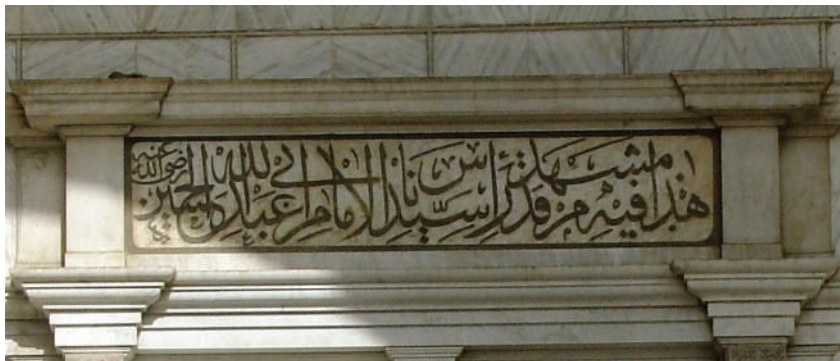 هذا مشهد فيه مرقد رأس سيدنا الامام ابي عبد الله الحسين رضي الله عنه